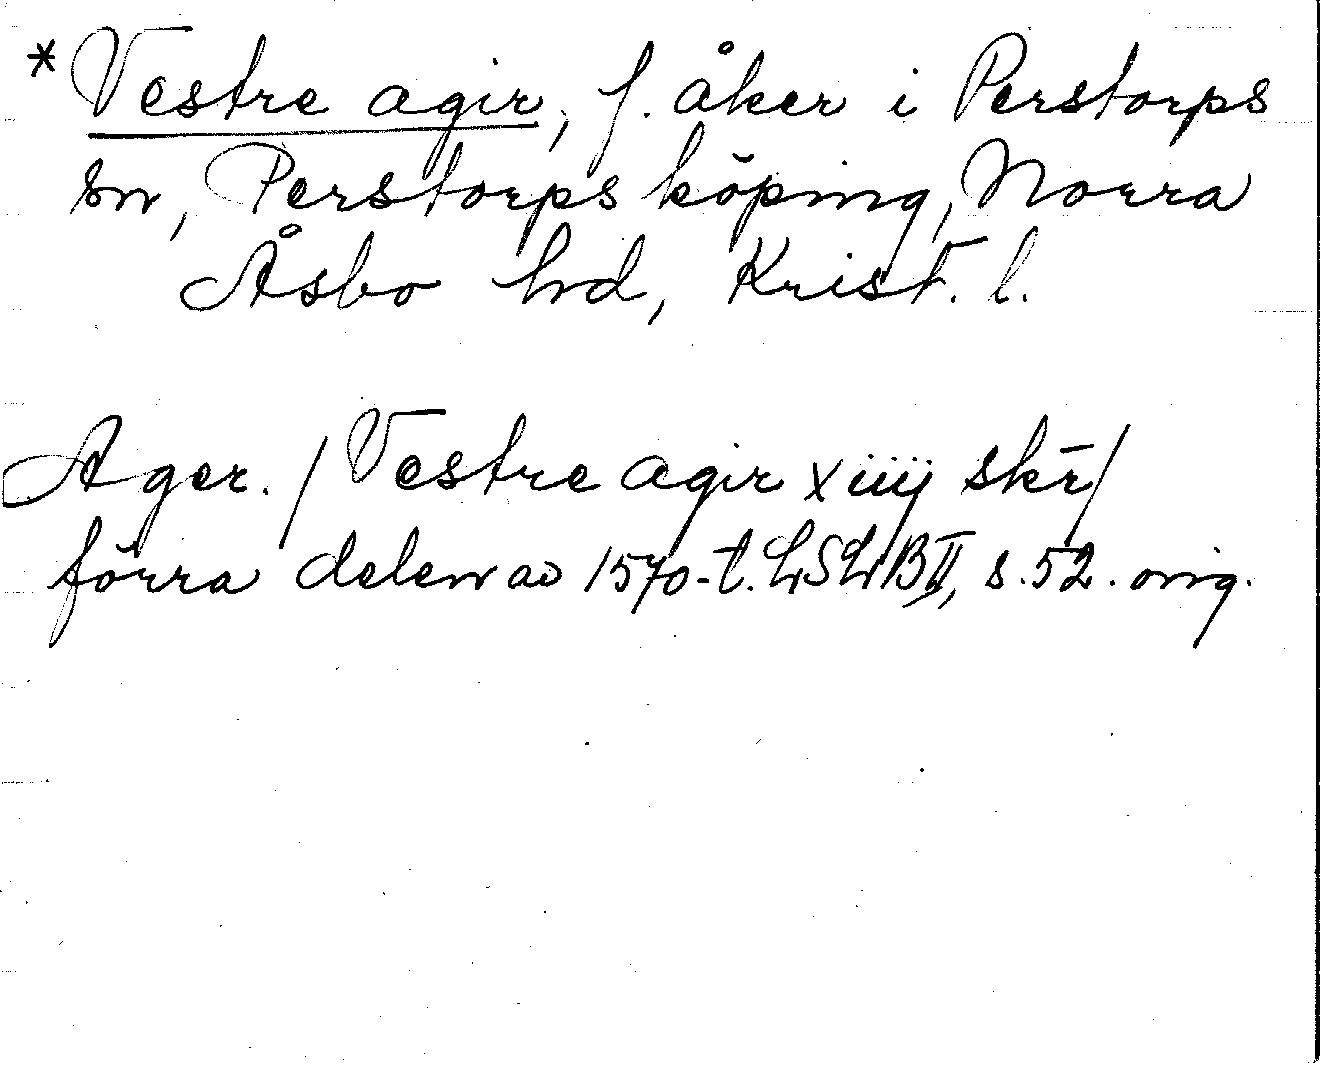 * Vestre agir, f. åker i Perstorps
sn, Perstorps köping, Norra
Åsbo hd, Krist. l.
Ager. / Vestre agir x iiij skr̄ /
förra delen av 1570-t. LSLB II, s. 52. orig.